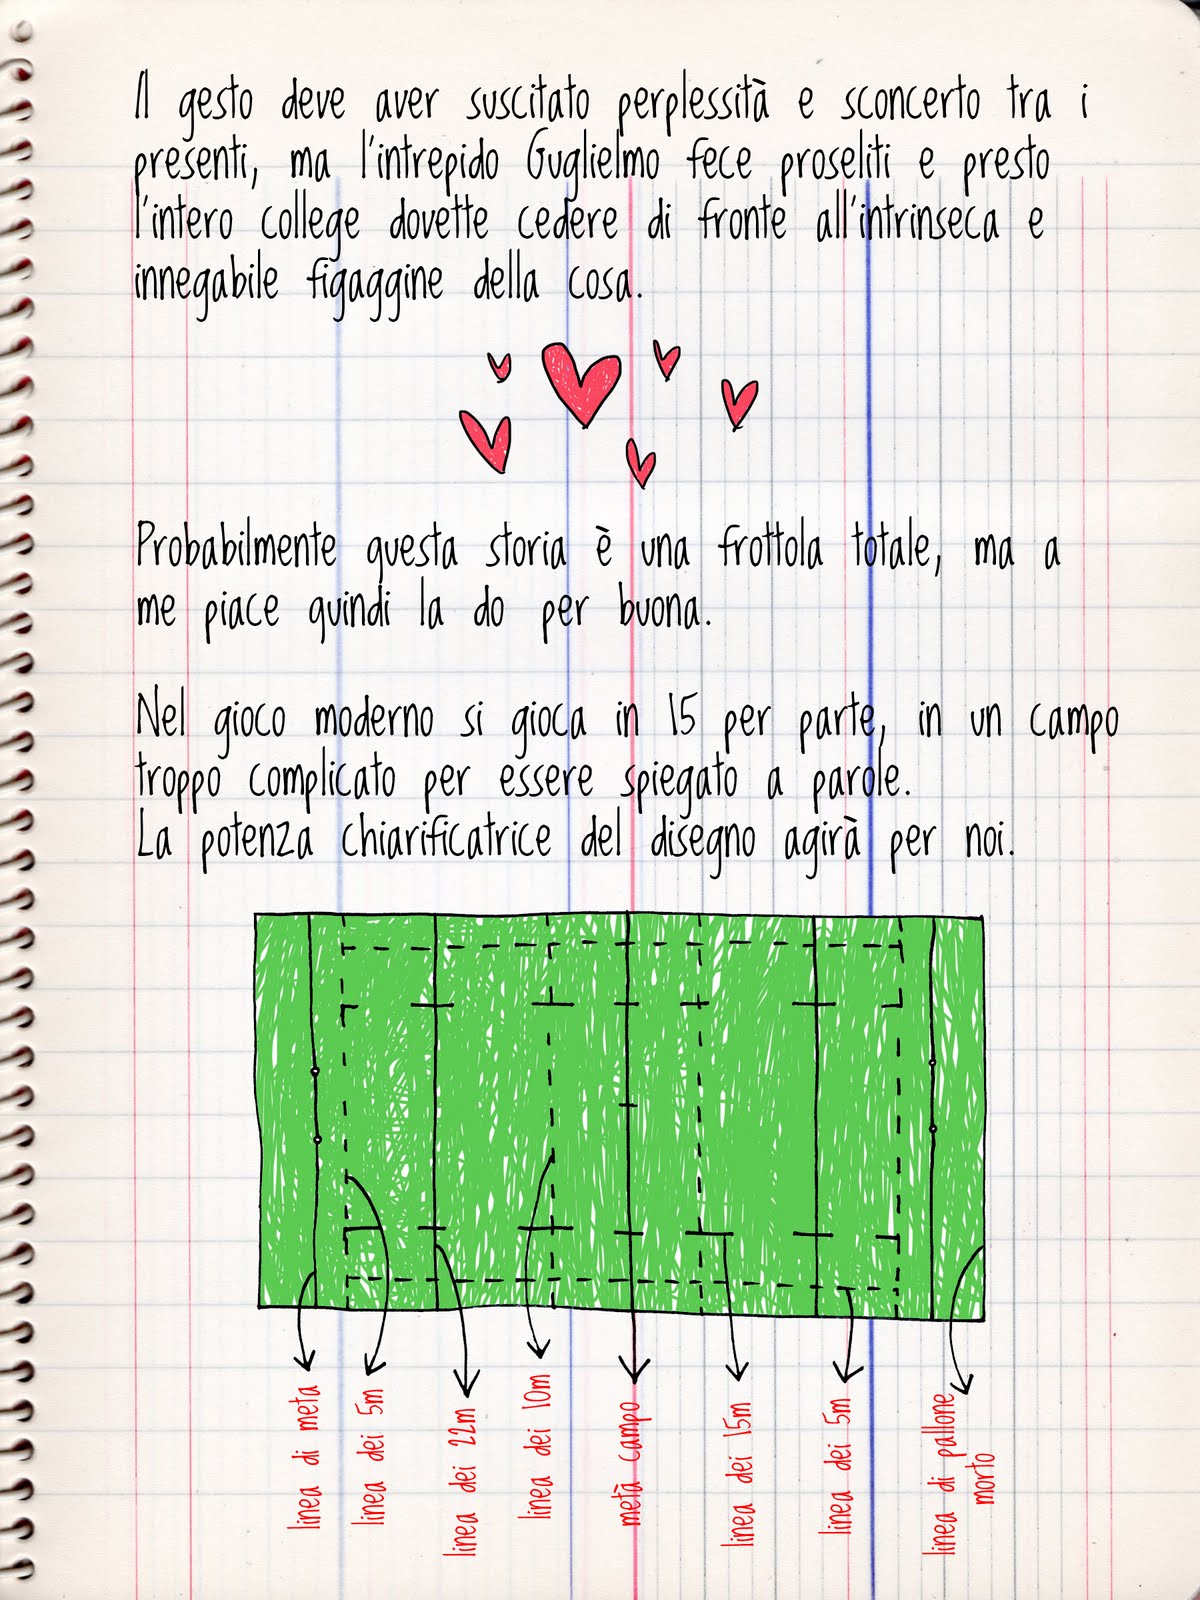 Il gesto deve aver suscitato perplessità e sconcerto tra i
presenti, ma l'intrepido Guglielmo fece proseliti e presto
l'intero college dovette cedere di fronte all'intrinseca e
innegabile figaggine della cosa.
Probabilmente questa storia è una frottola totale, ma a
me piace quindi la do per buona.
Nel gioco moderno si gioca in 15 per parte, in un campo
troppo complicato per essere spiegato a parole.
La potenza chiarificatrice del disegno agirà per noi.
linea di meta
linea dei 5m
linea dei 22m
linea dei 10m
metà campo
linea dei 15m
linea dei 5m
linea di pallone
morto